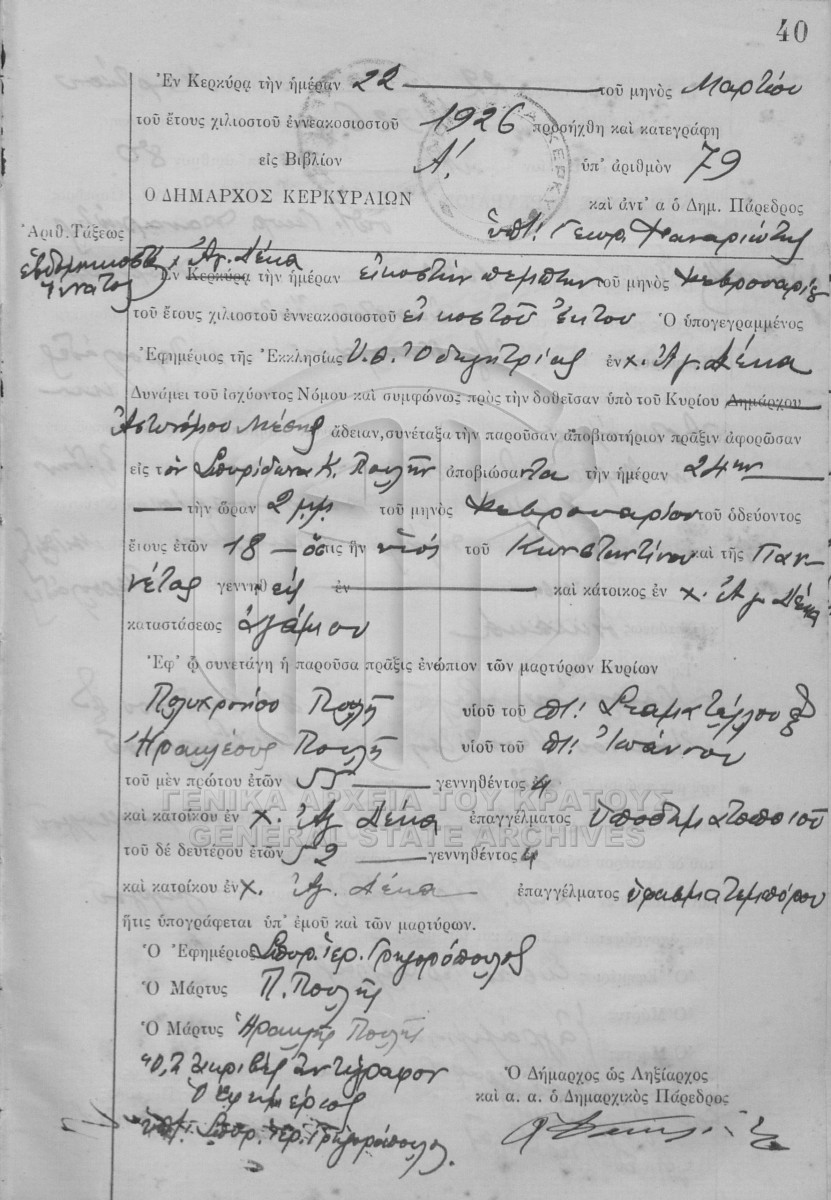 40
Ἐν Κερκύρᾳ τὴν ἡμέραν 22 τοῦ μηνὸς Μαρτίου
τοῦ ἔτους χιλιοστοῦ ἐννεακοσιοστοῦ 1926 προσήχθη καὶ κατεγράφη
εἰς Βιβλίον Α! ὑπ' ἀριθμὸν 79
Ο ΔΗΜΑΡΧΟΣ ΚΕΡΚΥΡΑΙΩΝ καὶ ἀντ' α ὁ Δημ. Πάρεδρος
Γεωρ. Φαναριώτης
Ἀριθ. Τάξεως
ἑβδομηκοστὴ ἐννάτη
χ. Ἁγ. Δέκα
Ἐν Κερκύρᾳ τὴν ἡμέραν εἰκοστὴν πέμπτην τοῦ μηνὸς Φεβρουαρίου
τοῦ ἔτους χιλιοστοῦ ἐννεακοσιοστοῦ εἰκοστοῦ ἕκτου Ὁ ὑπογεγραμμένος
Ἐφημέριος τῆς Ἐκκλησίας Υ. Θ. Ὁδηγητρίας ἐν χ. Ἁγ. Δέκα
Δυνάμει τοῦ ἰσχύοντος Νόμου καὶ συμφώνως πρὸς τὴν δοθεῖσαν ὑπὸ τοῦ Κυρίου Δημάρχου
Ἀστυνόμου Μέσης ἄδειαν, συνέταξα τὴν παροῦσαν ἀποβιωτήριον πρᾶξιν ἀφορῶσαν
εἰς τὸν Σπυρίδωνα Κ. Πουλῆν ἀποβιώσαντα τὴν ἡμέραν 24ην
τὴν ὥραν 2 μ.μ. τοῦ μηνὸς Φεβρουαρίου τοῦ ὁδεύοντος
ἔτους ἐτῶν 18 ὅστις ἦν υἱός τοῦ Κωνσταντίνου καὶ τῆς Γιαν-
νέτας γεννηθείς ἐν καὶ κάτοικος ἐν χ. Ἁγ. Δέκα
καταστάσεως ἀγάμου
Ἐφ' ᾧ συνετάγη ἡ παροῦσα πρᾶξις ἐνώπιον τῶν μαρτύρων Κυρίων
Πολυχρονίου Πουλῆ υἱοῦ τοῦ Σταματέλλου
Ἡρακλέους Πουλῆ υἱοῦ τοῦ Ἰωάννου
τοῦ μὲν πρώτου ἐτῶν 55 γεννηθέντος
ΓΕΝΙΚΑ ΑΡΧΕΙΑ ΤΟΥ ΚΡΑΤΟΥΣ
καὶ κατοίκου ἐν χ. Ἁγ. Δέκα ἐπαγγέλματος ὑποδηματοποιοῦ
GENERAL STATE ARCHIVES
τοῦ δὲ δευτέρου ἐτῶν 52 γεννηθέντος
καὶ κατοίκου ἐν χ. Ἁγ. Δέκα ἐπαγγέλματος ὑφασματεμπόρου
ἥτις ὑπογράφεται ὑπ' ἐμοῦ καὶ τῶν μαρτύρων.
Ὁ Ἐφημέριος Σπυρ. ἱερ. Γρηγορόπουλος
Ὁ Μάρτυς Π. Πουλῆς
Ὁ Μάρτυς Ἡρακλῆς Πουλῆς
ἀκριβὲς ἀντίγραφον
Ὁ Ἐφημέριος
Σπυρ. ἱερ. Γρηγορόπουλος
Ὁ Δήμαρχος ὡς Ληξίαρχος
καὶ α. α. ὁ Δημαρχικὸς Πάρεδρος